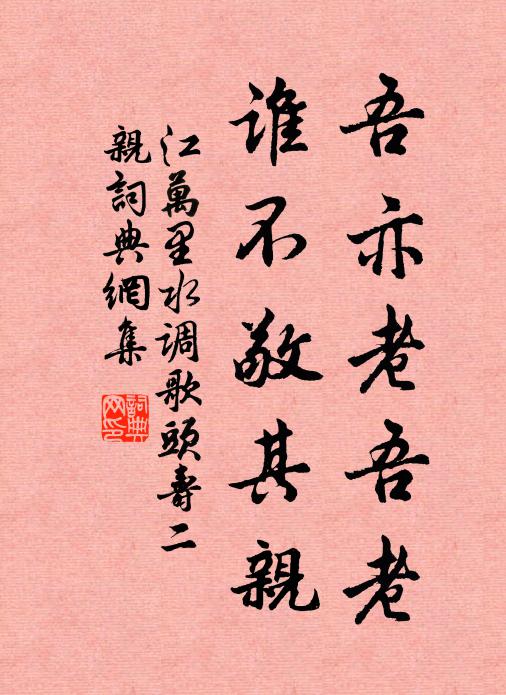 吾亦老吾老
谁不敬其親
江萬里水调歌頭壽二
親詞典網集
詞典
网印